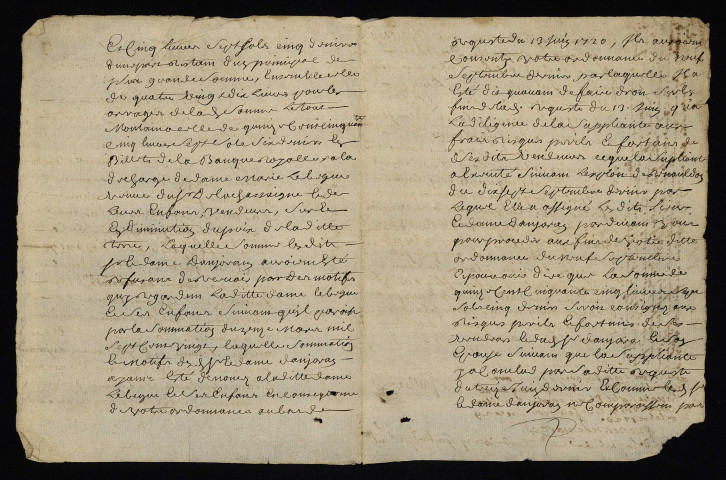 Et Cinq livres sept sols cinq deniers
dune part restant du principal de
plus grande somme, Ensemble celle
de quatre vingt dix livres pour les
arrages de la d. somme le tout
Montant a celle de quinze Cent cinquante
cinq livres sept sols six deniers En
Billets de la Banque royalle a la
descharge de dame Marie Lebegue
veuve du Sr De la chassaigne et de
leurs Enfans, vendeurs, sur le
Et Diminution du prix de la ditte
terre, laquelle somme lesdits
Sr et dame Danjorais auroient Esté
refusans de recevoir par Des motifs
qui regardent laditte dame lebegue
et ses Enfans suivant quil paroist
par la sommation du onze Mars mil
sept Cent vingt, laquelle sommation
et Motifs des Srs et dame danjorais
ayant Esté dénoncé a laditte dame
Lebegue et ses Enfans En consequence
de votre ordonnance au bas de
requeste du 13 Juin 1720, Ils auroient
votre ordonnance du neuf
Septembre dernier par laquelle Il a
Esté dit quavant de faire droit sur les
fins de lad. requeste du 13 Juin, qu'a
la diligence de la Suppliante aux
frais risques perils et fortunes de
desdits vendeurs ce que la Suppliante
a Execute suivant
du dix sept Septembre dernier par
lequel Elle a assigné lesdits Sieur
et dame Danjorais pardevant vous
pour proceder aux fins de votre ditte
ordonnance du neuf Septembre
dire que la somme de
quinze Cent Cinquante cinq livres sept
sols cinq deniers seroit consignez aux
risques perils et fortunes de ses
vendeurs et dud. Sr danjorais et son
Epouse suivant que la Suppliante
y a Conclud par saditte requeste
du treize Juin dernier Et Comme les d. Sr
et dame danjorais ne Comparoissent pas